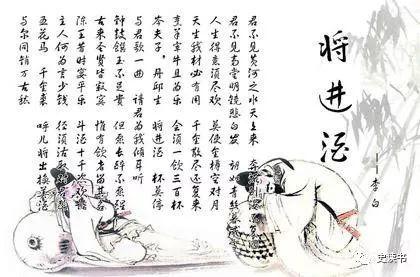 将进酒
——李白
君不见黄河之水天上来 奔流
君不见高堂明镜悲白发 朝如青丝暮
人生得意须尽欢 莫使金樽空对月
天生我材必有用 千金散尽还复来
烹羊宰牛且为乐 会须一饮三百杯
岑夫子，丹丘生 将进酒 杯莫停
与君歌一曲 请君为我倾耳听
钟鼓馔玉不足贵 但愿长醉不愿醒
古来圣贤皆寂寞 惟有饮者留其名
陈王昔时宴平乐 斗酒十千恣欢谑
主人何为言少钱 径须沽取对君酌
五花马 千金裘 呼儿将出换美酒
与尔同销万古愁